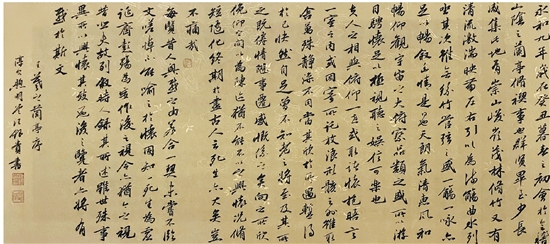 永和九年歲在癸丑暮春之初會於會稽
山陰之蘭亭脩禊事也群賢畢至少長
咸集此地有崇山峻嶺茂林脩竹又有
清流激湍映帶左右引以為流觴曲水列
坐其次雖無絲竹管弦之盛一觴一詠亦
足以暢敘幽情是日也天朗氣清惠風和
暢仰觀宇宙之大俯察品類之盛所以遊
目騁懷足以極視聽之娛信可樂也
夫人之相與俯仰一世或取諸懷抱晤言
一室之內或因寄所託放浪形骸之外雖取
舍萬殊靜躁不同當其欣於所遇暫得
於己快然自足不知老之將至及其所
之既倦情隨事遷感慨係之矣向之所欣
俯仰之間以為陳迹猶不能不以之興懷況脩
短隨化終期於盡古人云死生亦大矣豈
不痛哉
每覽昔人興感之由若合一契未嘗不臨
文嗟悼不能喻之於懷固知一死生為虛
誕齊彭殤為妄作後之視今亦猶今之視
昔悲夫故列敘時人錄其所述雖世殊事
異所以興懷其致一也後之覽者亦將有
感於斯文
王羲之蘭亭序
書